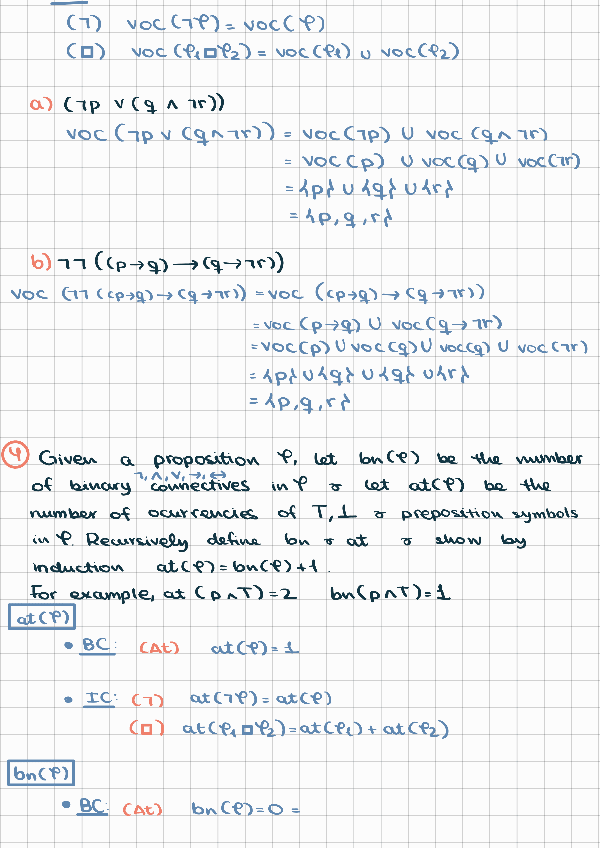 (¬) voc(¬φ) = voc(φ)
(□) voc(φ₁□φ₂) = voc(φ₁) ∪ voc(φ₂)
a) (¬p ∨ (q ∧ ¬r))
voc(¬p ∨ (q ∧ ¬r)) = voc(¬p) ∪ voc(q ∧ ¬r)
= voc(p) ∪ voc(q) ∪ voc(¬r)
= {p} ∪ {q} ∪ {r}
= {p, q, r}
b) ¬¬((p→q) → (q→¬r))
voc (¬¬((p→q)→(q→¬r)) = voc ((p→q)→(q→¬r))
= voc(p→q) ∪ voc(q→¬r)
= voc(p) ∪ voc(q) ∪ voc(q) ∪ voc(¬r)
= {p} ∪ {q} ∪ {q} ∪ {r}
= {p, q, r}
4 Given a proposition φ, let bn(φ) be the number
¬, ∧, ∨, →, ↔
of binary connectives in φ & let at(φ) be the
number of ocurrencies of T, ⊥ & preposition symbols
in φ. Recursively define bn & at & show by
induction at(φ) = bn(φ)+1.
For example, at (p∧T)=2 bn(p∧T)=1
at(φ)
• BC: (At) at(φ)=1
• IC: (¬) at(¬φ)=at(φ)
(□) at(φ₁□φ₂)=at(φ₁)+at(φ₂)
bn(φ)
• BC: (At) bn(φ)=0 =